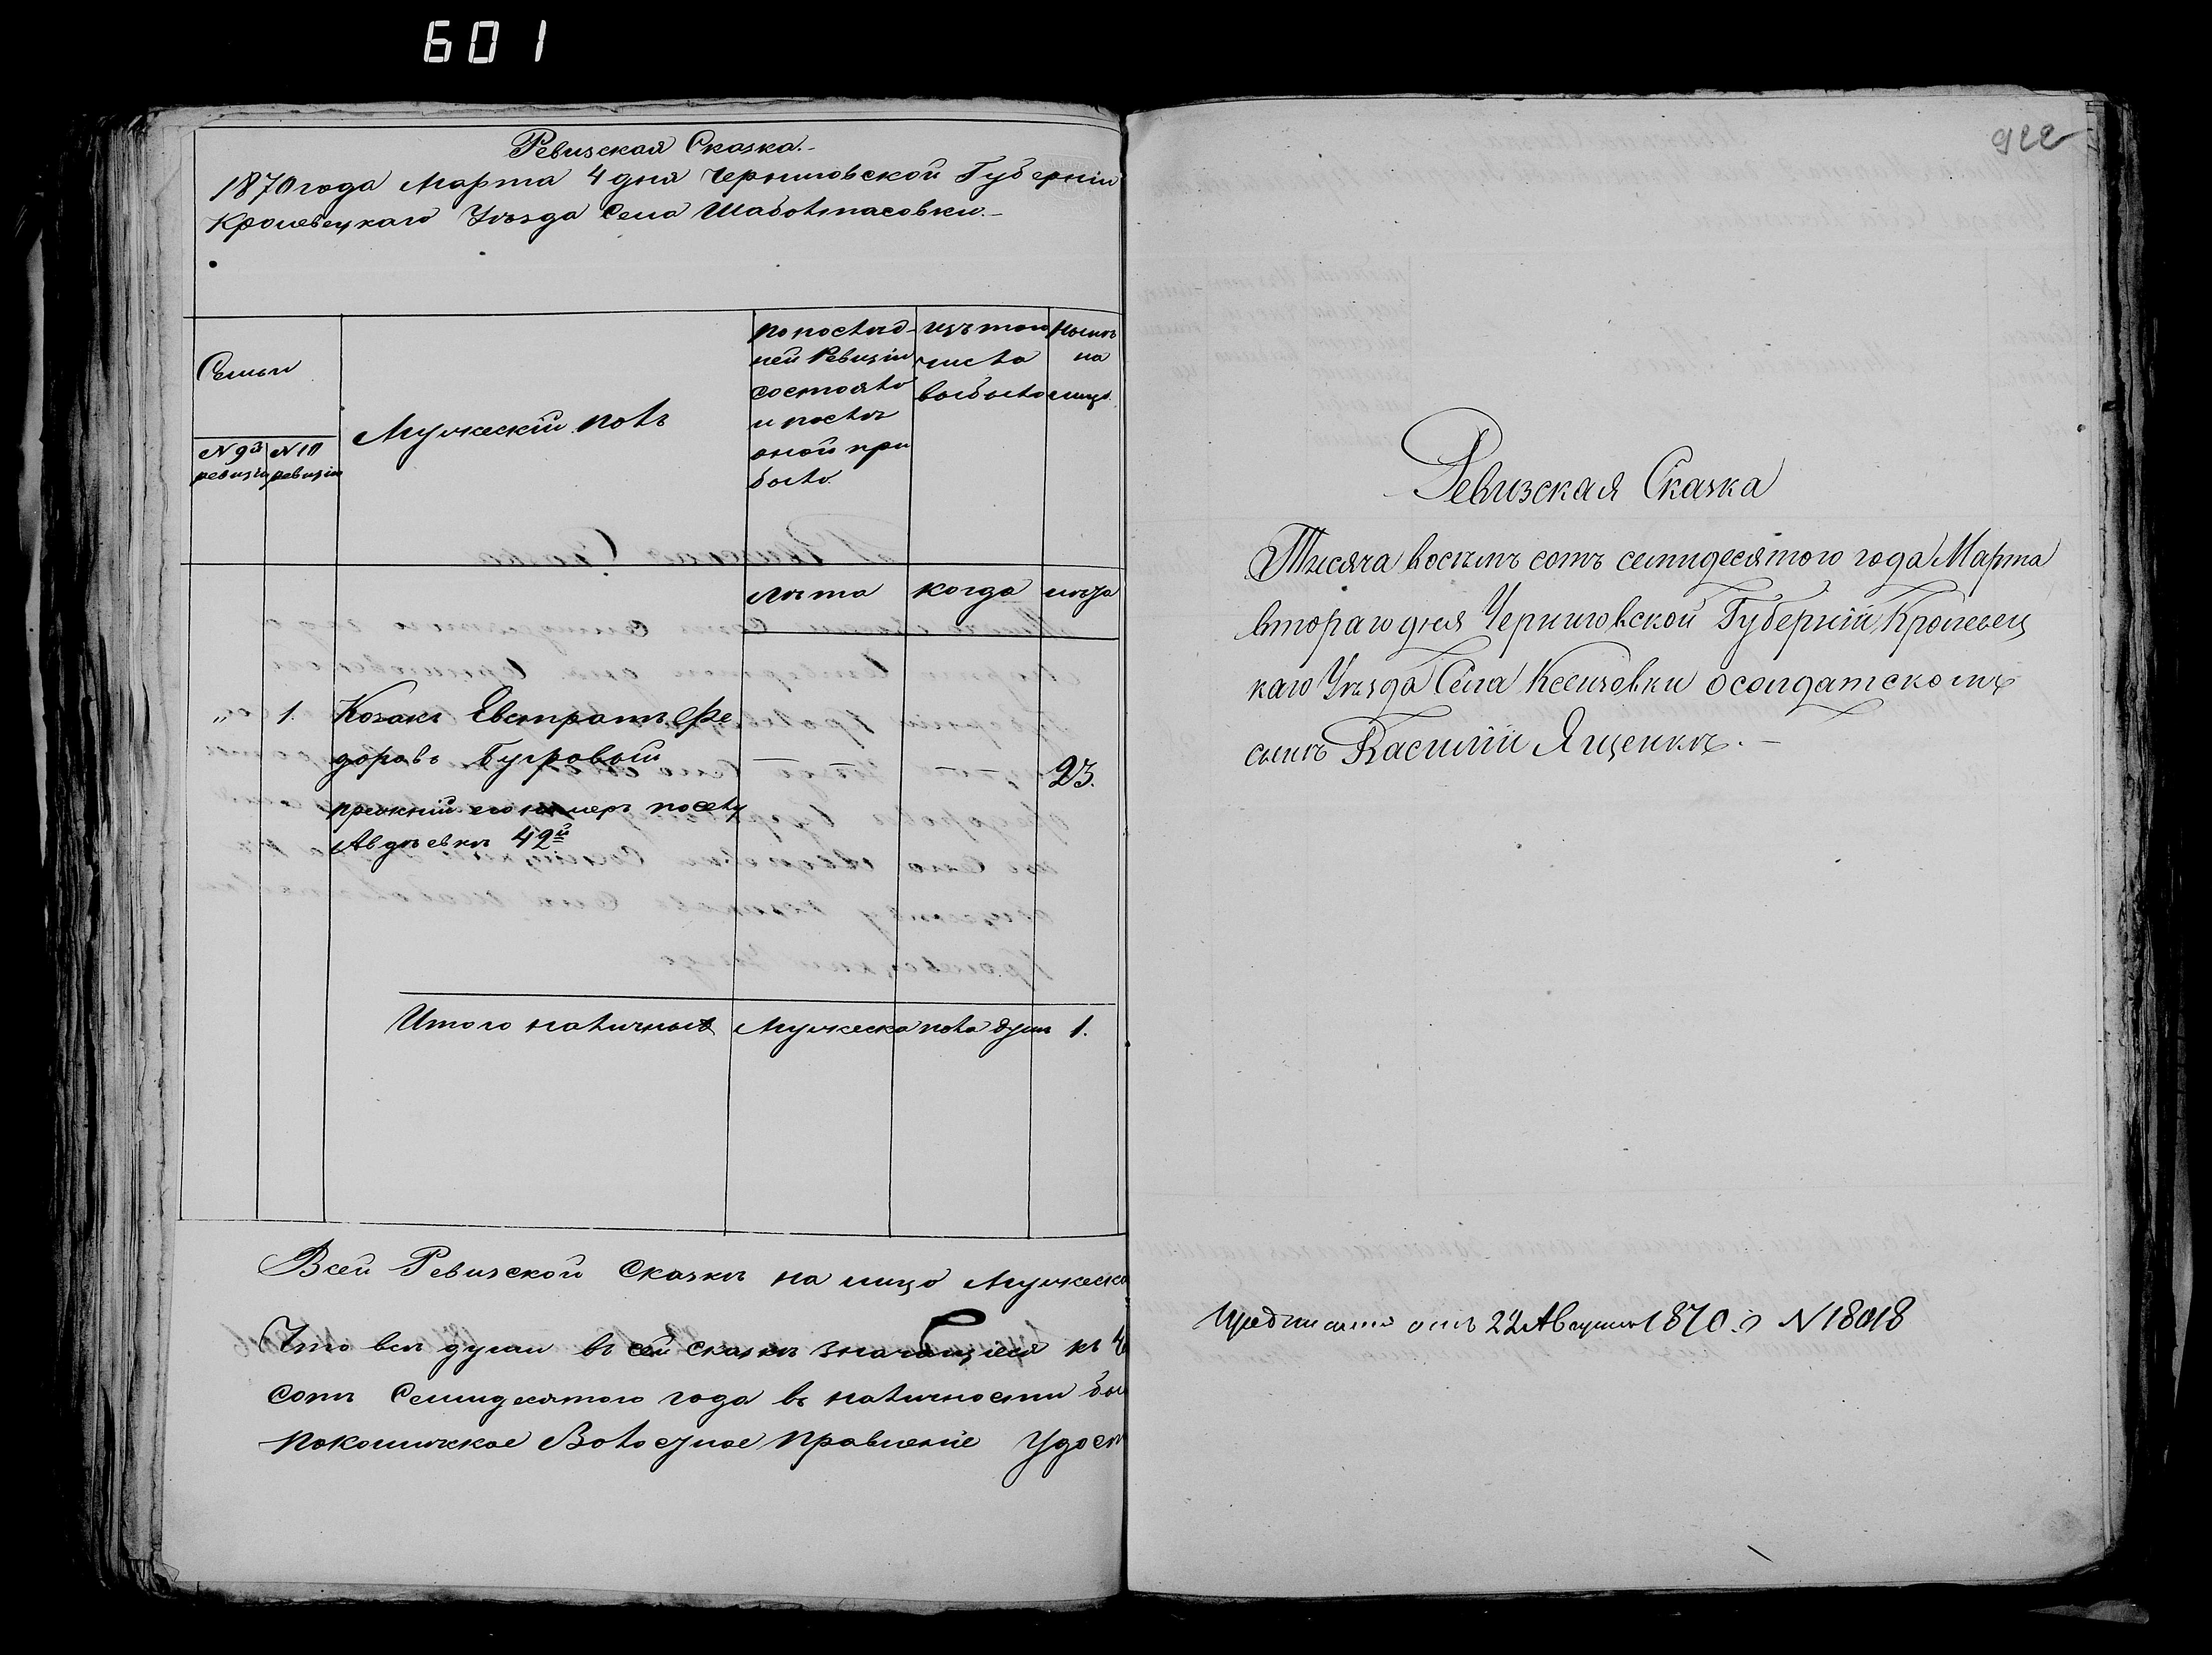 601
Ревизская Сказка.
1870 года Марта 4 дня Черниговской Губерніи
Кролевецкаго Уѣзда Села Шаболтасовки.
Семьи
№ 9й ревизіи
№ 10 ревизіи
Мужескій полъ
по послѣд-
ней Ревизіи
состояло
и послѣ
оной при
было.
изъ того
числа
выбыло
нынѣ
на
лицо.
лѣта
когда
лѣта
" 1. Козакъ Евстратъ Фе
доровъ Бугровый
23.
прежній его номеръ по селу
Авдѣевкѣ 42й
Итого наличныхъ Мужеска пола душъ 1.
Всей Ревизской Сказкѣ на лицо Мужеска
Что всѣ души въ сей сказкѣ значащіеся къ 4
сотъ Семидесятого года въ наличности бы
Покошичское Волосное Правленіе Удост
922
Ревизская Сказка
Тысяча восемъ сотъ семидесятого года Марта
втораго дня Черниговской Губерніи, Кролевец
каго Уѣзда Села о солдатскомъ
сынѣ Василіи Ященкѣ.
Предписаніе отъ 22 Августа 1870 г. № 18018